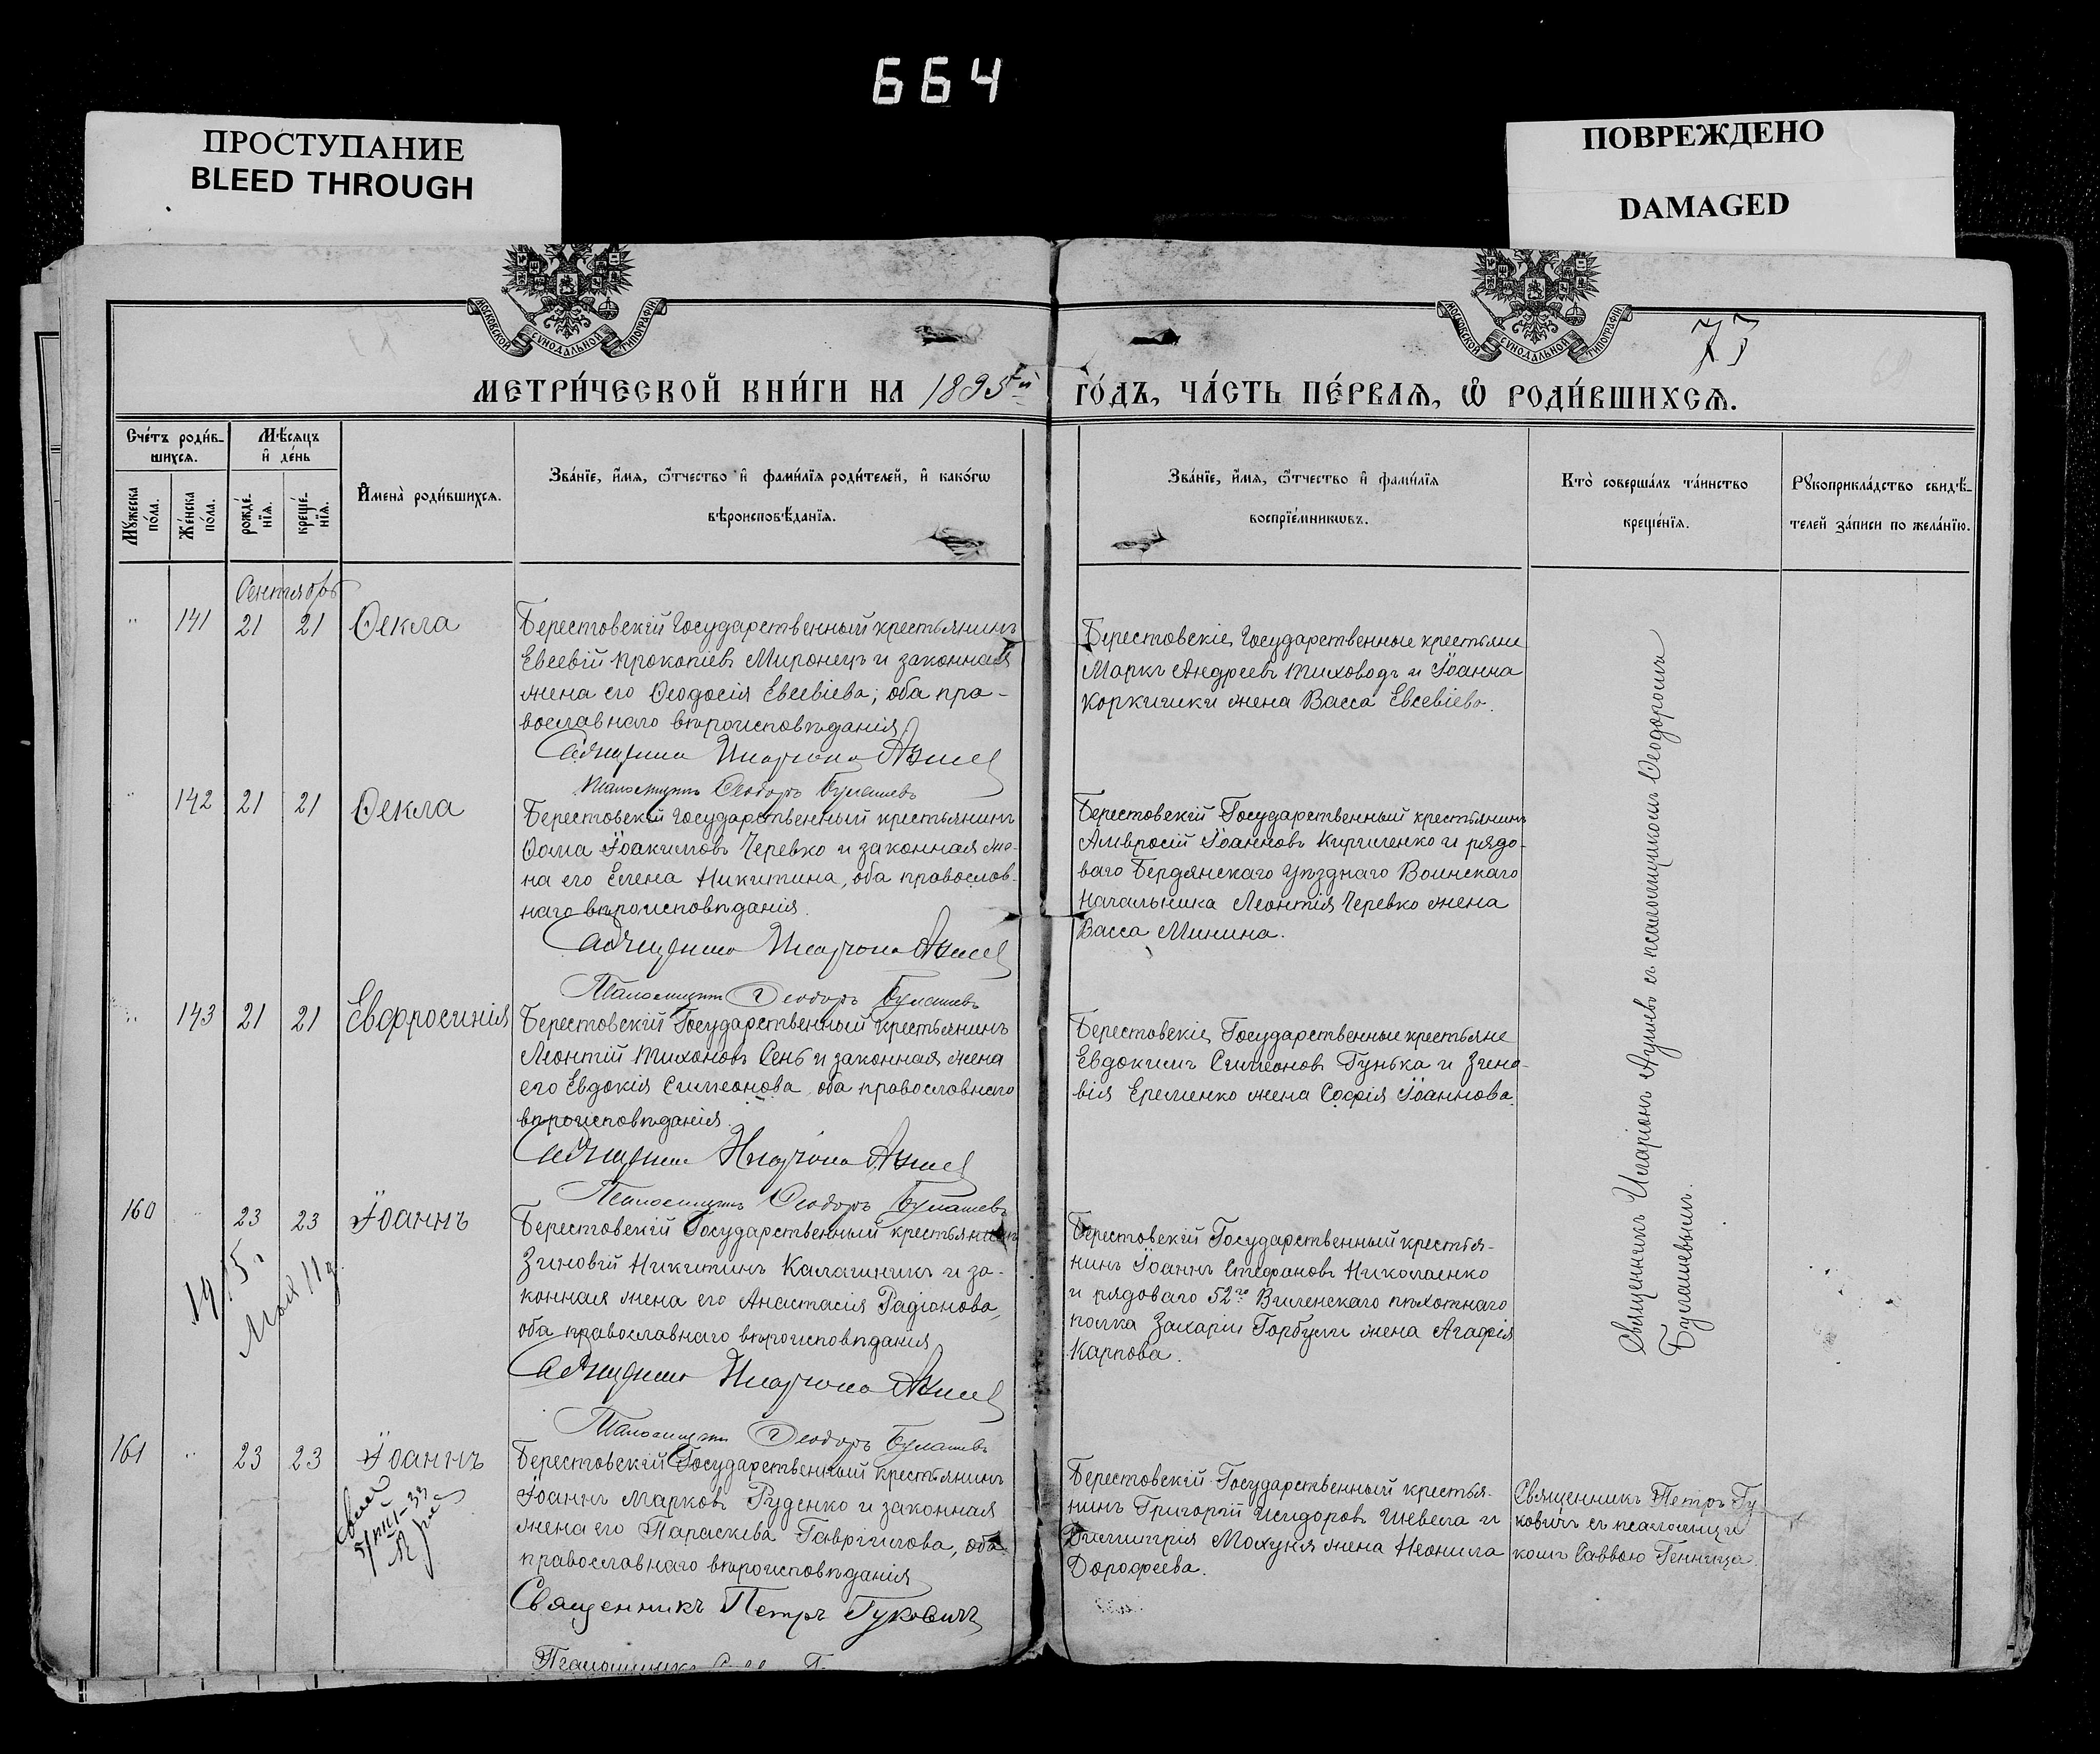 664
ПРОСТУПАНИЕ
BLEED THROUGH
ПОВРЕЖДЕНО
DAMAGED
МОСКОВСКОЙ СѴНОДАЛЬНОЙ ТИПОГРАФІИ
МОСКОВСКОЙ СѴНОДАЛЬНОЙ ТИПОГРАФІИ
МЕТРИ́ЧЕСКОЙ КНИ́ГИ НА 1895й
ГО́ДЪ, ЧА́СТЬ ПЕ́РВАѦ, Ѡ РОДИ́ВШИХСѦ.
Сче́тъ роди́в-
шихсѧ.
Мѣ́сѧцъ
и҆ де́нь
Мꙋ́жеска
по́ла.
Же́нска
по́ла.
рожде́-
нїѧ.
креще́-
нїѧ.
И҆мена̀ роди́вшихсѧ.
Зва́нїе, и҆́мѧ, ѻ҆́тчество и҆ фами́лїѧ роди́телей, и҆ како́гѡ
вѣроисповѣ́данїѧ.
Зва́нїе, и҆́мѧ, ѻ҆́тчество и҆ фами́лїѧ
воспрїе́мникѡвъ.
Кто̀ соверша́лъ та́инство
креще́нїѧ.
Рꙋкоприкла́дство свидѣ́-
телей за́писи по жела́нїю.
Сентябрь
141 21 21 Ѳекла
Берестовскій Государственный крестьянинъ
Евсевій Прокопіевъ Миронецъ и законная
жена его Ѳеодосія Евсевіева; оба пра-
вославнаго вѣроисповѣданія
Священникъ Иларіонъ
Псаломщикъ Ѳеодоръ Булашевъ
Берестовскіе Государственные крестьяне
Маркъ Андреевъ Тиховодъ и Іоанна
Коркишки жена Васса Евсевіева.
142 21 21 Ѳекла
Берестовскій Государственный крестьянинъ
Ѳома Іоакимовъ Черевко и законная же-
на его Елена Никитина, оба православ-
наго вѣроисповѣданія.
Священникъ Иларіонъ
Псаломщикъ Ѳеодоръ Булашевъ
Берестовскій Государственный крестьянинъ
Амвросій Іоанновъ Кириленко и рядо-
ваго Бердянскаго Уѣзднаго Воинскаго
Начальника Леонтія Черевко жена
Васса Минина.
143 21 21 Евфросинія
Берестовскій Государственный крестьянинъ
Леонтій Тихоновъ Сень и законная жена
его Евдокія Симеонова, оба православнаго
вѣроисповѣданія.
Священникъ Иларіонъ
Псаломщикъ Ѳеодоръ Булашевъ
Берестовскіе Государственные крестьяне
Евдокимъ Симеоновъ Гунька и Зино-
вія Еременко жена Софія Іоаннова.
160 23 23 Іоаннъ
1915 г.
Мая 11 д.
Берестовскій Государственный крестьянинъ
Зиновій Никитинъ Калашникъ и за-
конная жена его Анастасія Радіонова,
оба православнаго вѣроисповѣданія
Священникъ Иларіонъ
Псаломщикъ Ѳеодоръ Булашевъ
Берестовскій Государственный крестья-
нинъ Іоаннъ Стефановъ Николаенко
и рядоваго 52го Виленскаго пѣхотнаго
полка Захаріи Горбули жена Агафія
Карпова.
Священникъ Иларіонъ съ псаломщикомъ Ѳеодоромъ
Булашевымъ.
161 23 23 Іоаннъ
Берестовскій Государственный крестьянинъ
Іоаннъ Марковъ Руденко и законная
жена его Параскева Гавріилова, оба
православнаго вѣроисповѣданія
Священникъ Петръ Гуковичъ
Псаломщикъ
Берестовскій Государственный крестья-
нинъ Григорій Исидоровъ Шевела и
Димитрія Мохуня жена Неонила
Дорофеева.
Священникъ Петръ Гу-
ковичъ съ псаломщи-
комъ Саввою